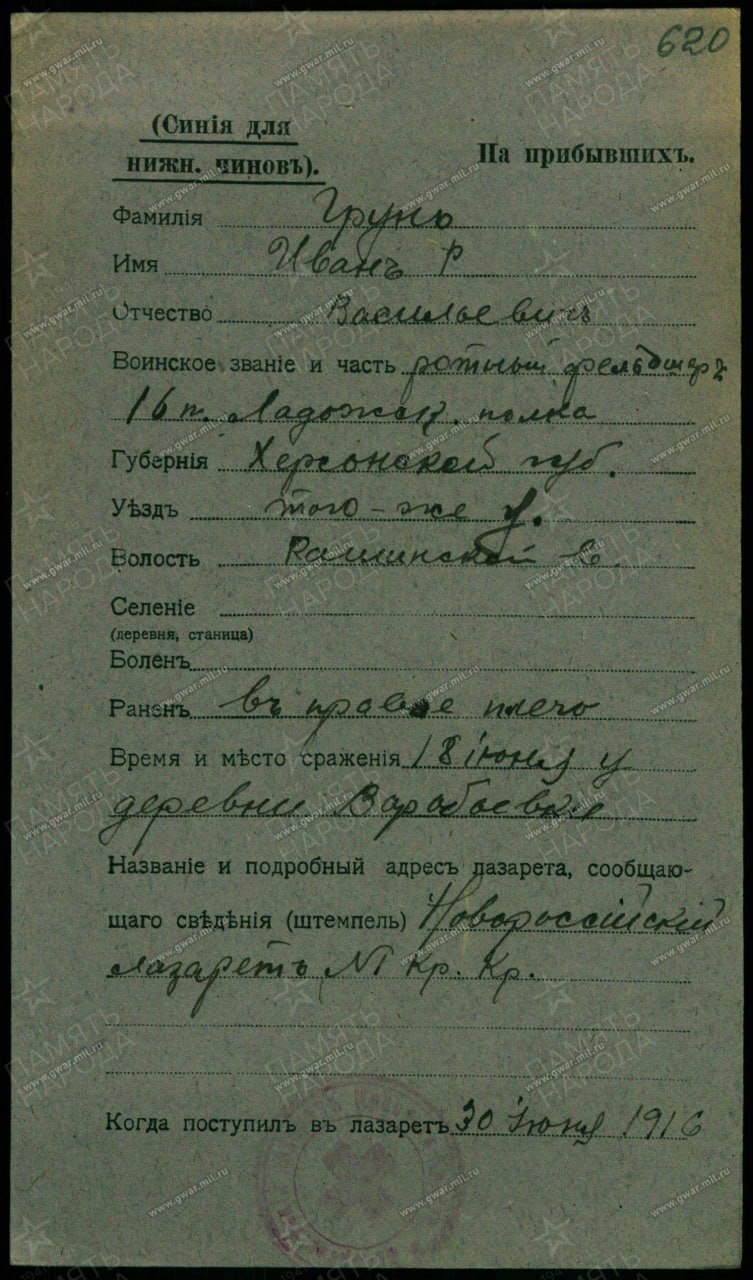 620
(Синія для
нижн. чиновъ).
На прибывшихъ.
Фамилія Грунь
Имя Иванъ Р
Отчество Васильевичъ
Воинское званіе и часть ротный фельдшеръ
16 п. Ладожск. полка
Губернія Херсонской губ.
Уѣздъ того-же у.
Волость в.
Селеніе
(деревня, станица)
Боленъ
Раненъ въ правое плечо
Время и мѣсто сраженія 18 іюня у
деревни
Названіе и подробный адресъ лазарета, сообщаю-
щаго свѣдѣнія (штемпель) Новороссійскій
лазаретъ №1 Кр. Кр.
Когда поступилъ въ лазаретъ 30 іюня 1916
ПАМЯТЬ НАРОДА
www.gwar.mil.ru